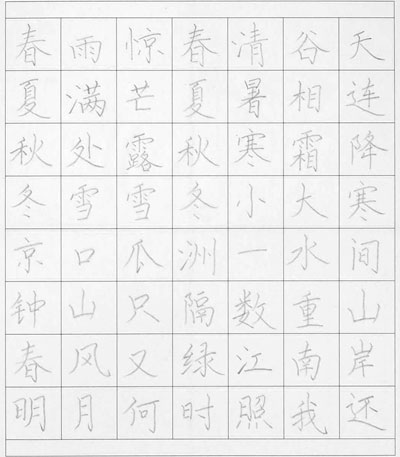 春雨惊春清谷天
夏满芒夏暑相连
秋处露秋寒霜降
冬雪雪冬小大寒
京口瓜洲一水间
钟山只隔数重山
春风又绿江南岸
明月何时照我还